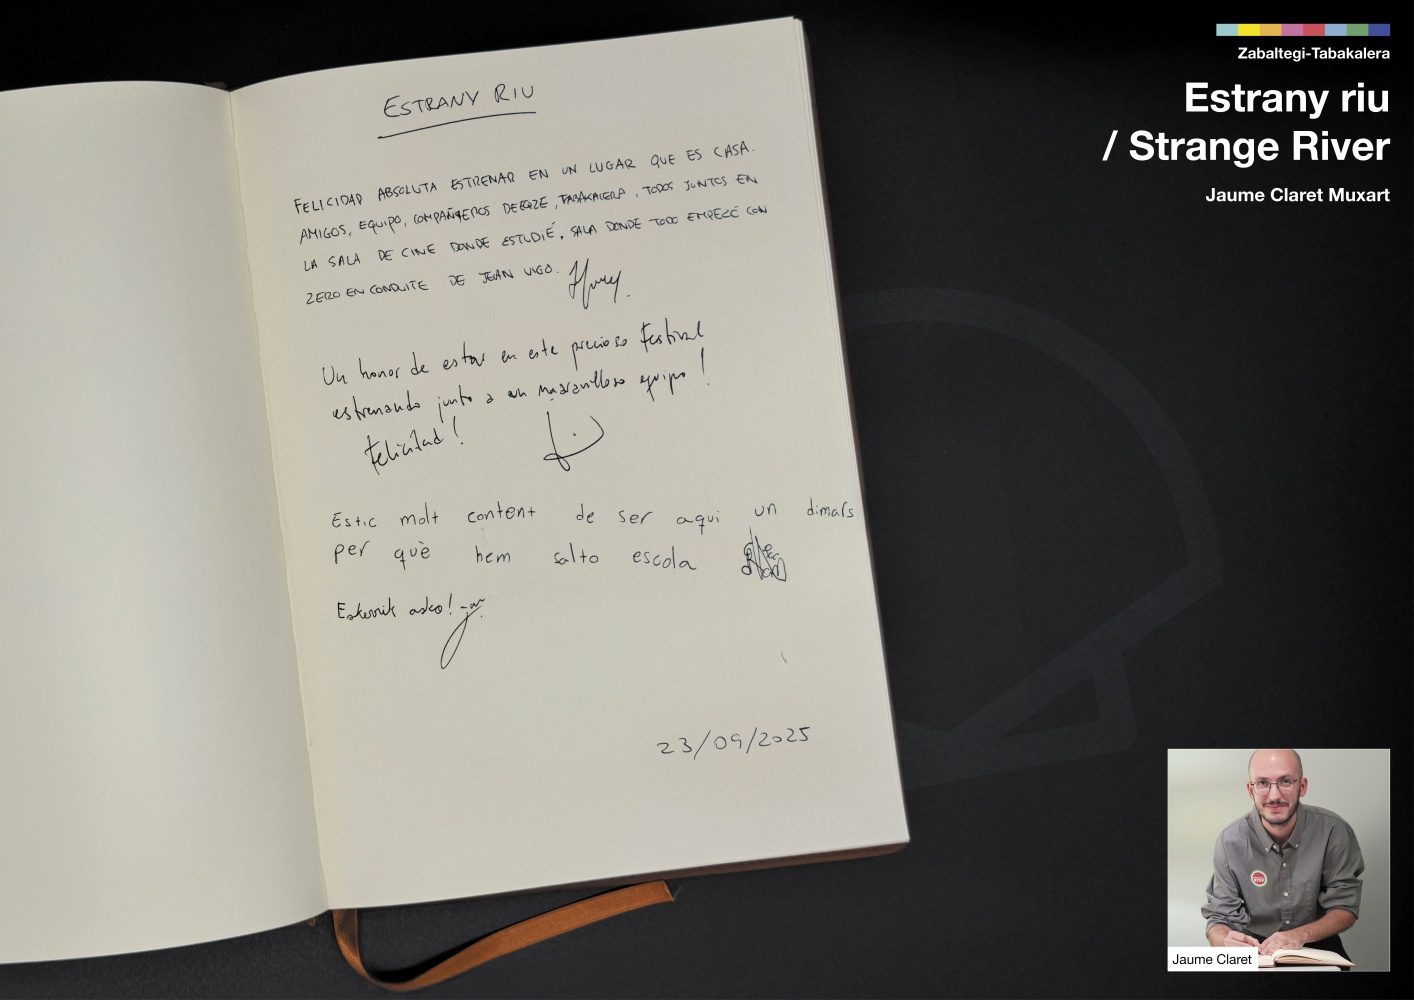 ESTRANY RIU
FELICIDAD ABSOLUTA ESTRENAR EN UN LUGAR QUE ES CASA.
AMIGOS, EQUIPO, COMPAÑEROS DE EQZE, TABAKALERA, TODOS JUNTOS EN
LA SALA DE CINE DONDE ESTUDIÉ, SALA DONDE TODO EMPEZÉ CON
ZERO EN CONDUITE DE JEAN VIGO.
Un honor de estar en este precioso Festival
estrenando junto a un maravilloso equipo!
Felicitad!
Estic molt content de ser aqui un dimars
per què hem salto escola
Eskerrik asko!
23/09/2025
Zabaltegi-Tabakalera
Estrany riu
/ Strange River
Jaume Claret Muxart
Jaume Claret